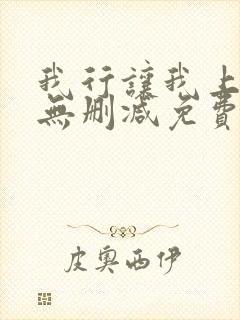 我行讓我上
無刪減免費
皮奧西伊